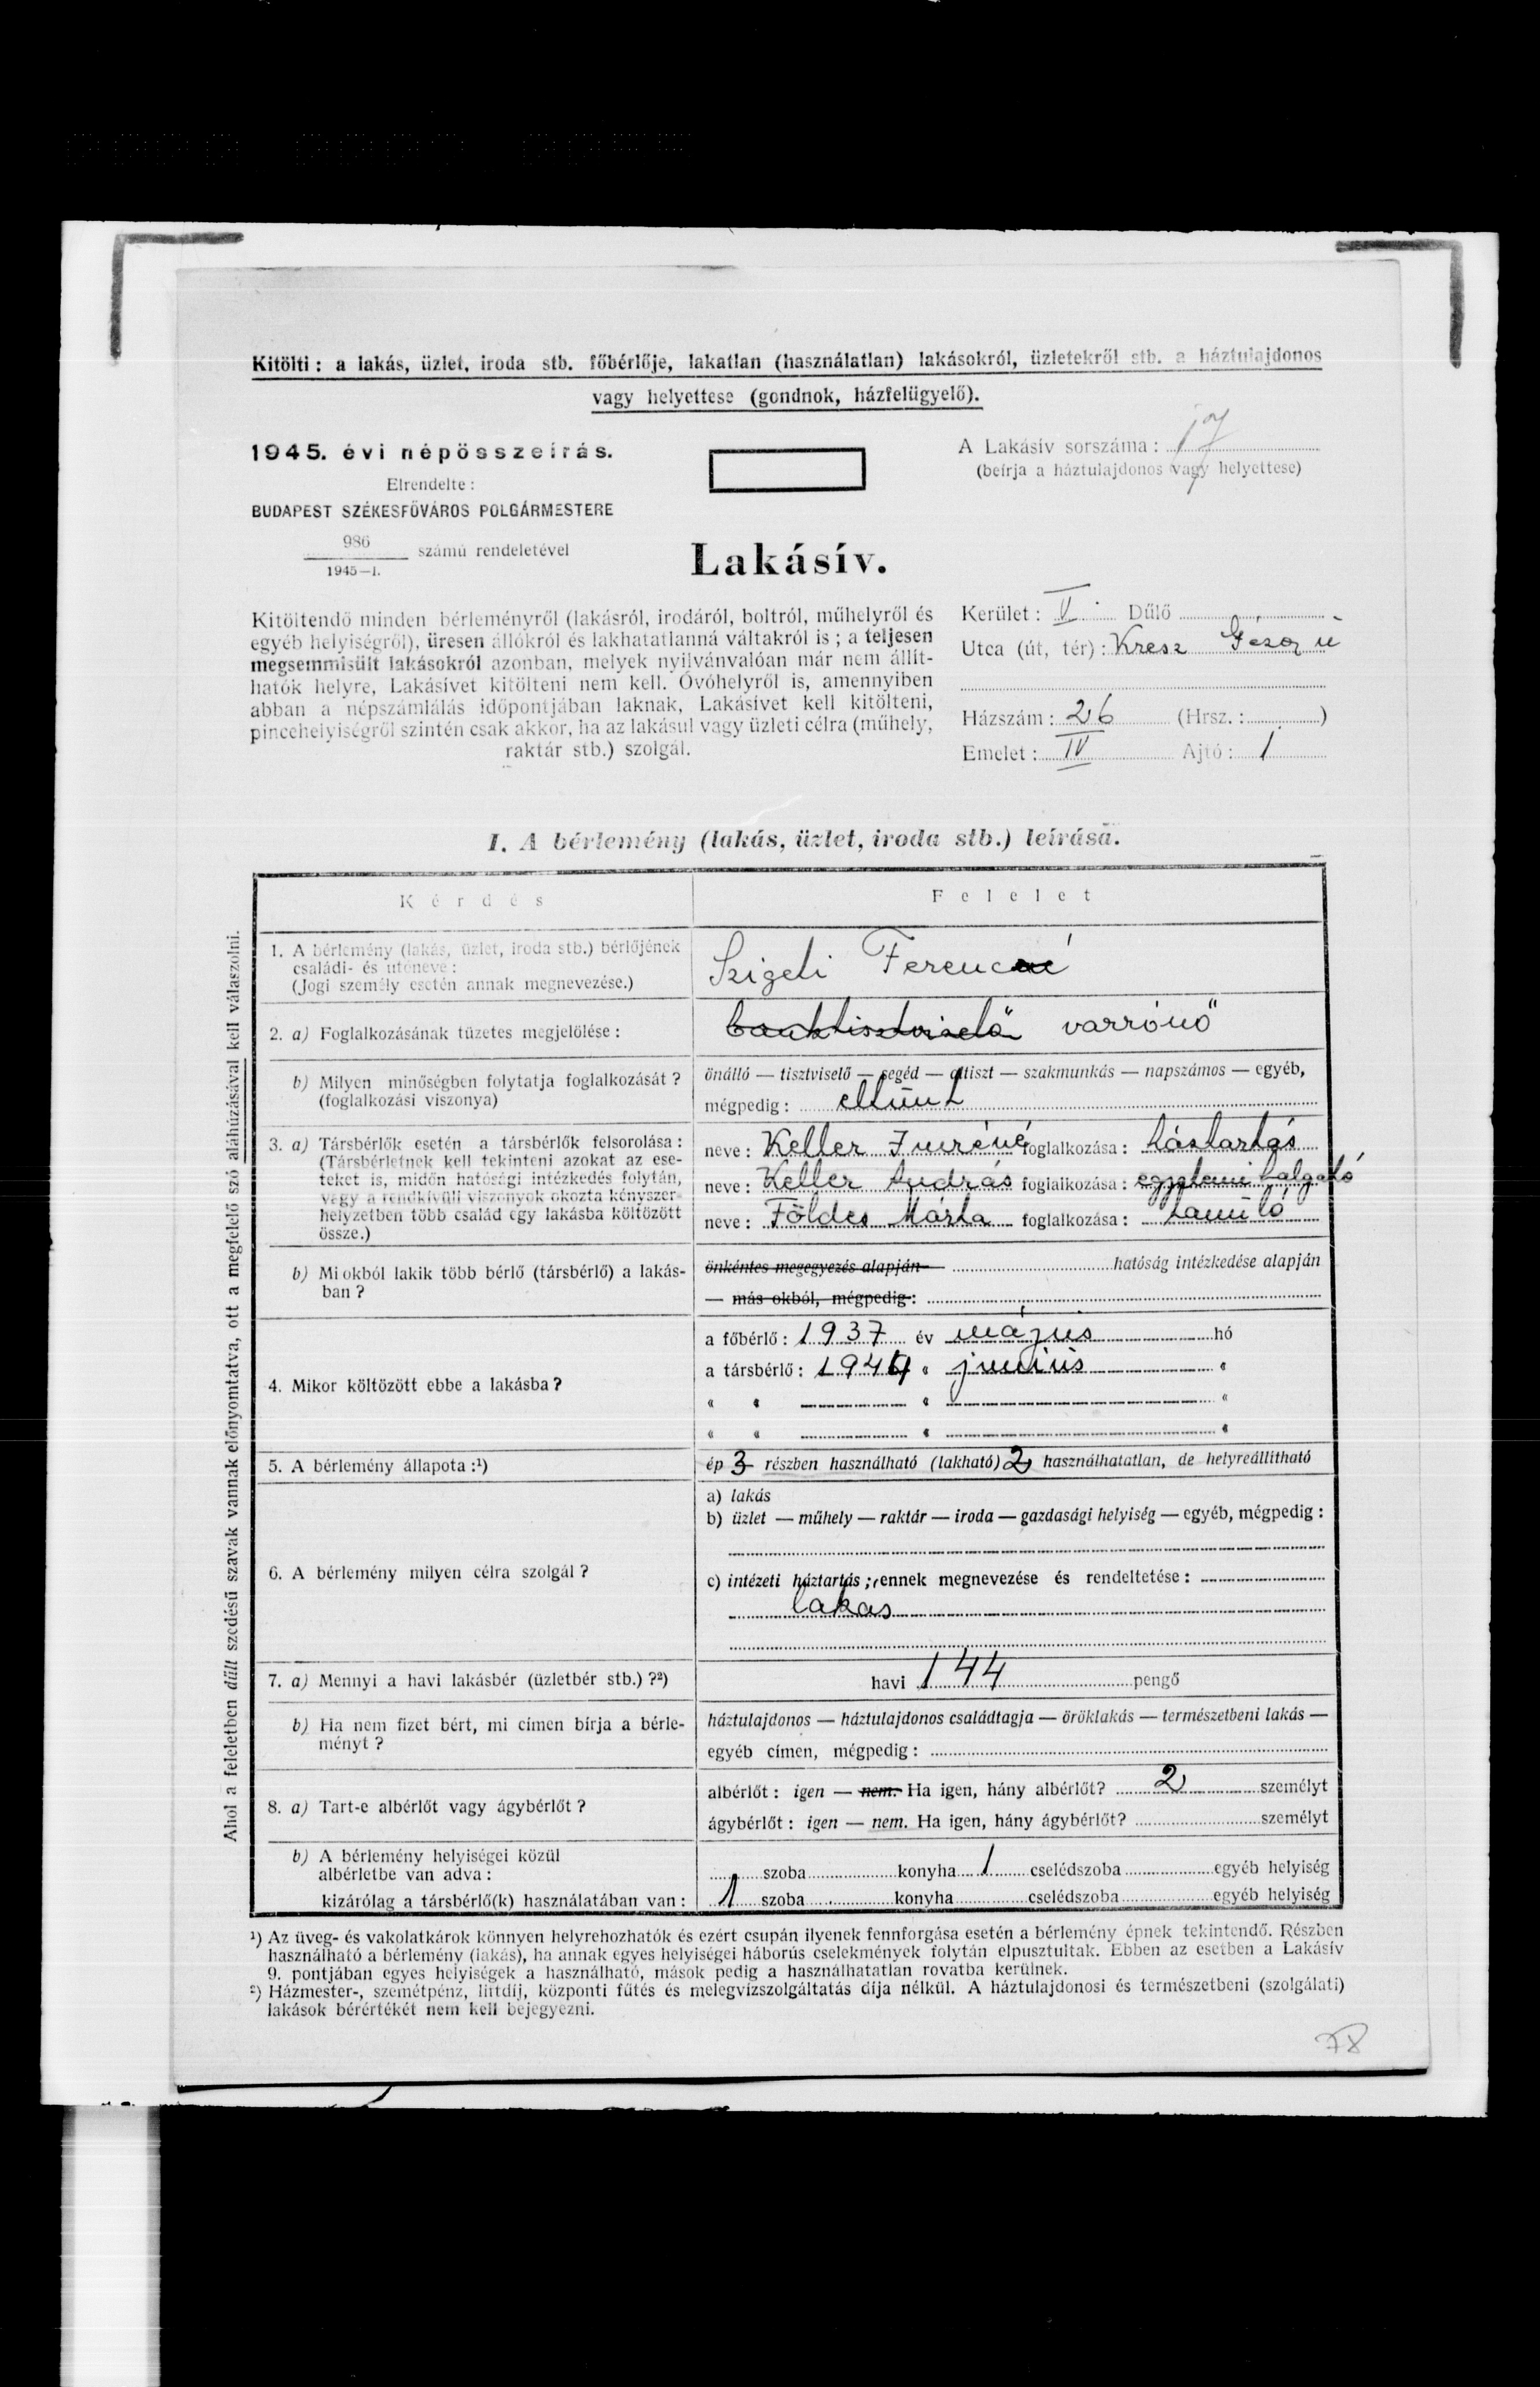 Kitölti: a lakás, üzlet, iroda stb. főbérlője, lakatlan (használatlan) lakásokról, üzletekről stb. a háztulajdonos
vagy helyettese (gondnok, házfelügyelő).
1945. évi népösszeírás.
A Lakásív sorszáma: 17
(beírja a háztulajdonos vagy helyettese)
Elrendelte:
BUDAPEST SZÉKESFŐVÁROS POLGÁRMESTERE
986
1945—I. számú rendeletével
Lakásív.
Kitöltendő minden bérleményről (lakásról, irodáról, boltról, műhelyről és
egyéb helyiségről), üresen állókról és lakhatatlanná váltakról is; a teljesen
megsemmisült lakásokról azonban, melyek nyilvánvalóan már nem állít-
hatók helyre, Lakásívet kitölteni nem kell. Óvóhelyről is, amennyiben
abban a népszámlálás időpontjában laknak, Lakásívet kell kitölteni,
pincehelyiségről szintén csak akkor, ha az lakásul vagy üzleti célra (műhely,
raktár stb.) szolgál.
Kerület: V. Dűlő
Utca (út, tér): Kresz Géza u
Házszám: 26 (Hrsz.: )
Emelet: IV Ajtó: 1
I. A bérlemény (lakás, üzlet, iroda stb.) leírása.
Kérdés
Felelet
1. A bérlemény (lakás, üzlet, iroda stb.) bérlőjének
családi- és utóneve:
(Jogi személy esetén annak megnevezése.)
Szigeti Ferencné
2. a) Foglalkozásának tüzetes megjelölése:
banktisztviselő varrónő
b) Milyen minőségben folytatja foglalkozását?
(foglalkozási viszonya)
önálló — tisztviselő — segéd — altiszt — szakmunkás — napszámos — egyéb,
mégpedig: eltünt
3. a) Társbérlők esetén a társbérlők felsorolása:
(Társbérletnek kell tekinteni azokat az ese-
teket is, midőn hatósági intézkedés folytán,
vagy a rendkívüli viszonyok okozta kényszer-
helyzetben több család egy lakásba költözött
össze.)
neve: Keller Imréné foglalkozása: háztartás
neve: Keller András foglalkozása: egyetemi halgató
neve: Földes Márta foglalkozása: tanuló
b) Mi okból lakik több bérlő (társbérlő) a lakás-
ban?
önkéntes megegyezés alapján — hatóság intézkedése alapján
— más okból, mégpedig:
4. Mikor költözött ebbe a lakásba?
a főbérlő: 1937 év május hó
a társbérlő: 1944 „ junius „
„ „ „ „
„ „ „ „
5. A bérlemény állapota:¹)
ép 3 részben használható (lakható) 2 használhatatlan, de helyreállítható
6. A bérlemény milyen célra szolgál?
a) lakás
b) üzlet — műhely — raktár — iroda — gazdasági helyiség — egyéb, mégpedig:
c) intézeti háztartás; ennek megnevezése és rendeltetése:
lakas
7. a) Mennyi a havi lakásbér (üzletbér stb.)?²)
havi 144 pengő
b) Ha nem fizet bért, mi címen bírja a bérle-
ményt?
háztulajdonos — háztulajdonos családtagja — öröklakás — természetbeni lakás —
egyéb címen, mégpedig:
8. a) Tart-e albérlőt vagy ágybérlőt?
albérlőt: igen — nem. Ha igen, hány albérlőt? 2 személyt
ágybérlőt: igen — nem. Ha igen, hány ágybérlőt? személyt
b) A bérlemény helyiségei közül
albérletbe van adva:
szoba konyha 1 cselédszoba egyéb helyiség
kizárólag a társbérlő(k) használatában van:
1 szoba konyha cselédszoba egyéb helyiség
Ahol a feleletben dűlt szedésű szavak vannak előnyomtatva, ott a megfelelő szó aláhúzásával kell válaszolni.
¹) Az üveg- és vakolatkárok könnyen helyrehozhatók és ezért csupán ilyenek fennforgása esetén a bérlemény épnek tekintendő. Részben
használható a bérlemény (lakás), ha annak egyes helyiségei háborús cselekmények folytán elpusztultak. Ebben az esetben a Lakásív
9. pontjában egyes helyiségek a használható, mások pedig a használhatatlan rovatba kerülnek.
²) Házmester-, szemétpénz, liftdíj, központi fűtés és melegvízszolgáltatás díja nélkül. A háztulajdonosi és természetbeni (szolgálati)
lakások bérértékét nem kell bejegyezni.